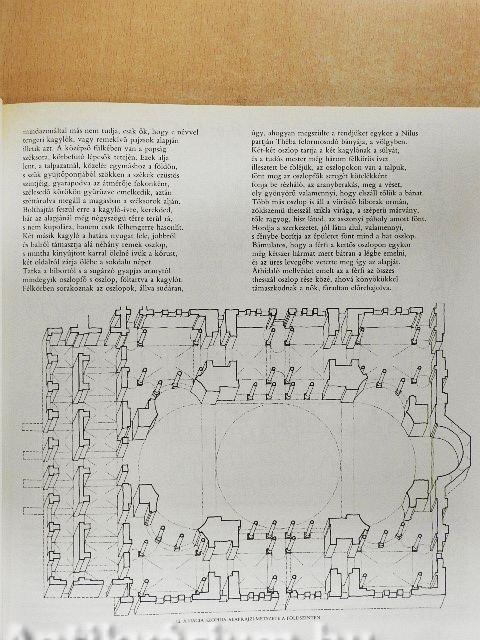 mindazonáltal más nem tudja, csak ők, hogy e névvel
tengeri kagylók, vagy remekívű pajzsok alapján
illetik azt. A középső fülkében van a papság
széksora, körbefutó lépcsők tetején. Ezek alja
lent, a talpazatnál, közelre egymáshoz a földön,
s szűk gyűjtőpontjából szökken a székek ezüstös
szintjéig, gyarapodva az átmérője fokonként,
szélesedő körökön gyűrűzve emelkedik, aztán
széttárulva megáll a magasban a széksorok alján.
Bolthajtás feszül erre a kagyló-ívre, kerekded,
bár az alapjánál még négyszögű térre terül rá,
s nem kupolára, hanem csak félhengerre hasonlít.
Két másik kagyló a határa nyugat felé, jobbról
és balról támasztja alá néhány remek oszlop,
s mintha kinyújtott karral ölelné ívük a kórust,
két oldalról zárja ölébe a sokdalú népet.
Tarka a bíbortól s a sugárzó gyapjas aranytól
mindegyik oszlopfő s oszlop, föltartva a kagylót.
Félkörben sorakoznak az oszlopok, állva sudáran,
úgy, ahogyan megszülte a rendjüket egykor a Nílus
partján Théba felormosodó bányája, a völgyben.
Két-két oszlop tartja a két kagylónak a súlyát,
és a tudós mester még három félkörös ívet
illesztett be föléjük, az oszlopokon van a talpuk,
fönt meg az oszlopfők szegét kötelékként
fonja be rézháló, az aranyberakás, meg a véset,
oly gyönyörű valamennyi, hogy elszáll tőlük a bánat.
Több más oszlop is áll a vöröslő bíborok ormán,
zöldszemű thesszál szikla virága, a széperű márvány,
tőle ragyog, hisz látod, az asszonyi páholy amott fönt.
Hordja a szerkezetet, jól látni alul, valamennyi,
s fénybe borítja az épületet fönt mind a hat oszlop.
Bámulatos, hogy a férfi a kettős oszlopon egykor
még kétszer hármat mert bátran a légbe emelni,
és az üres levegőbe vetette meg így az alapját.
Áthidaló mellvédet emelt az a férfi az összes
thesszál oszlop rése közé, ahová könyökükkel
támaszkodnak a nők, fáradtan előrehajolva.
12. A HAGIA SZOPHIA ALAPRAJZI METSZETE A FÖLDSZINTEN